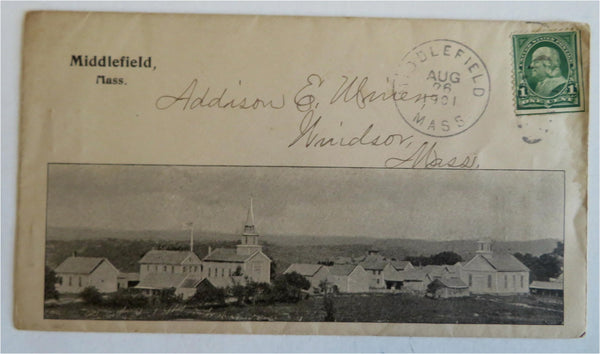 Middlefield,
Mass.
MIDDLEFIELD
AUG
26
1901
MASS
1 1
ONE CENT
Addison E.
Windsor,
Mass.